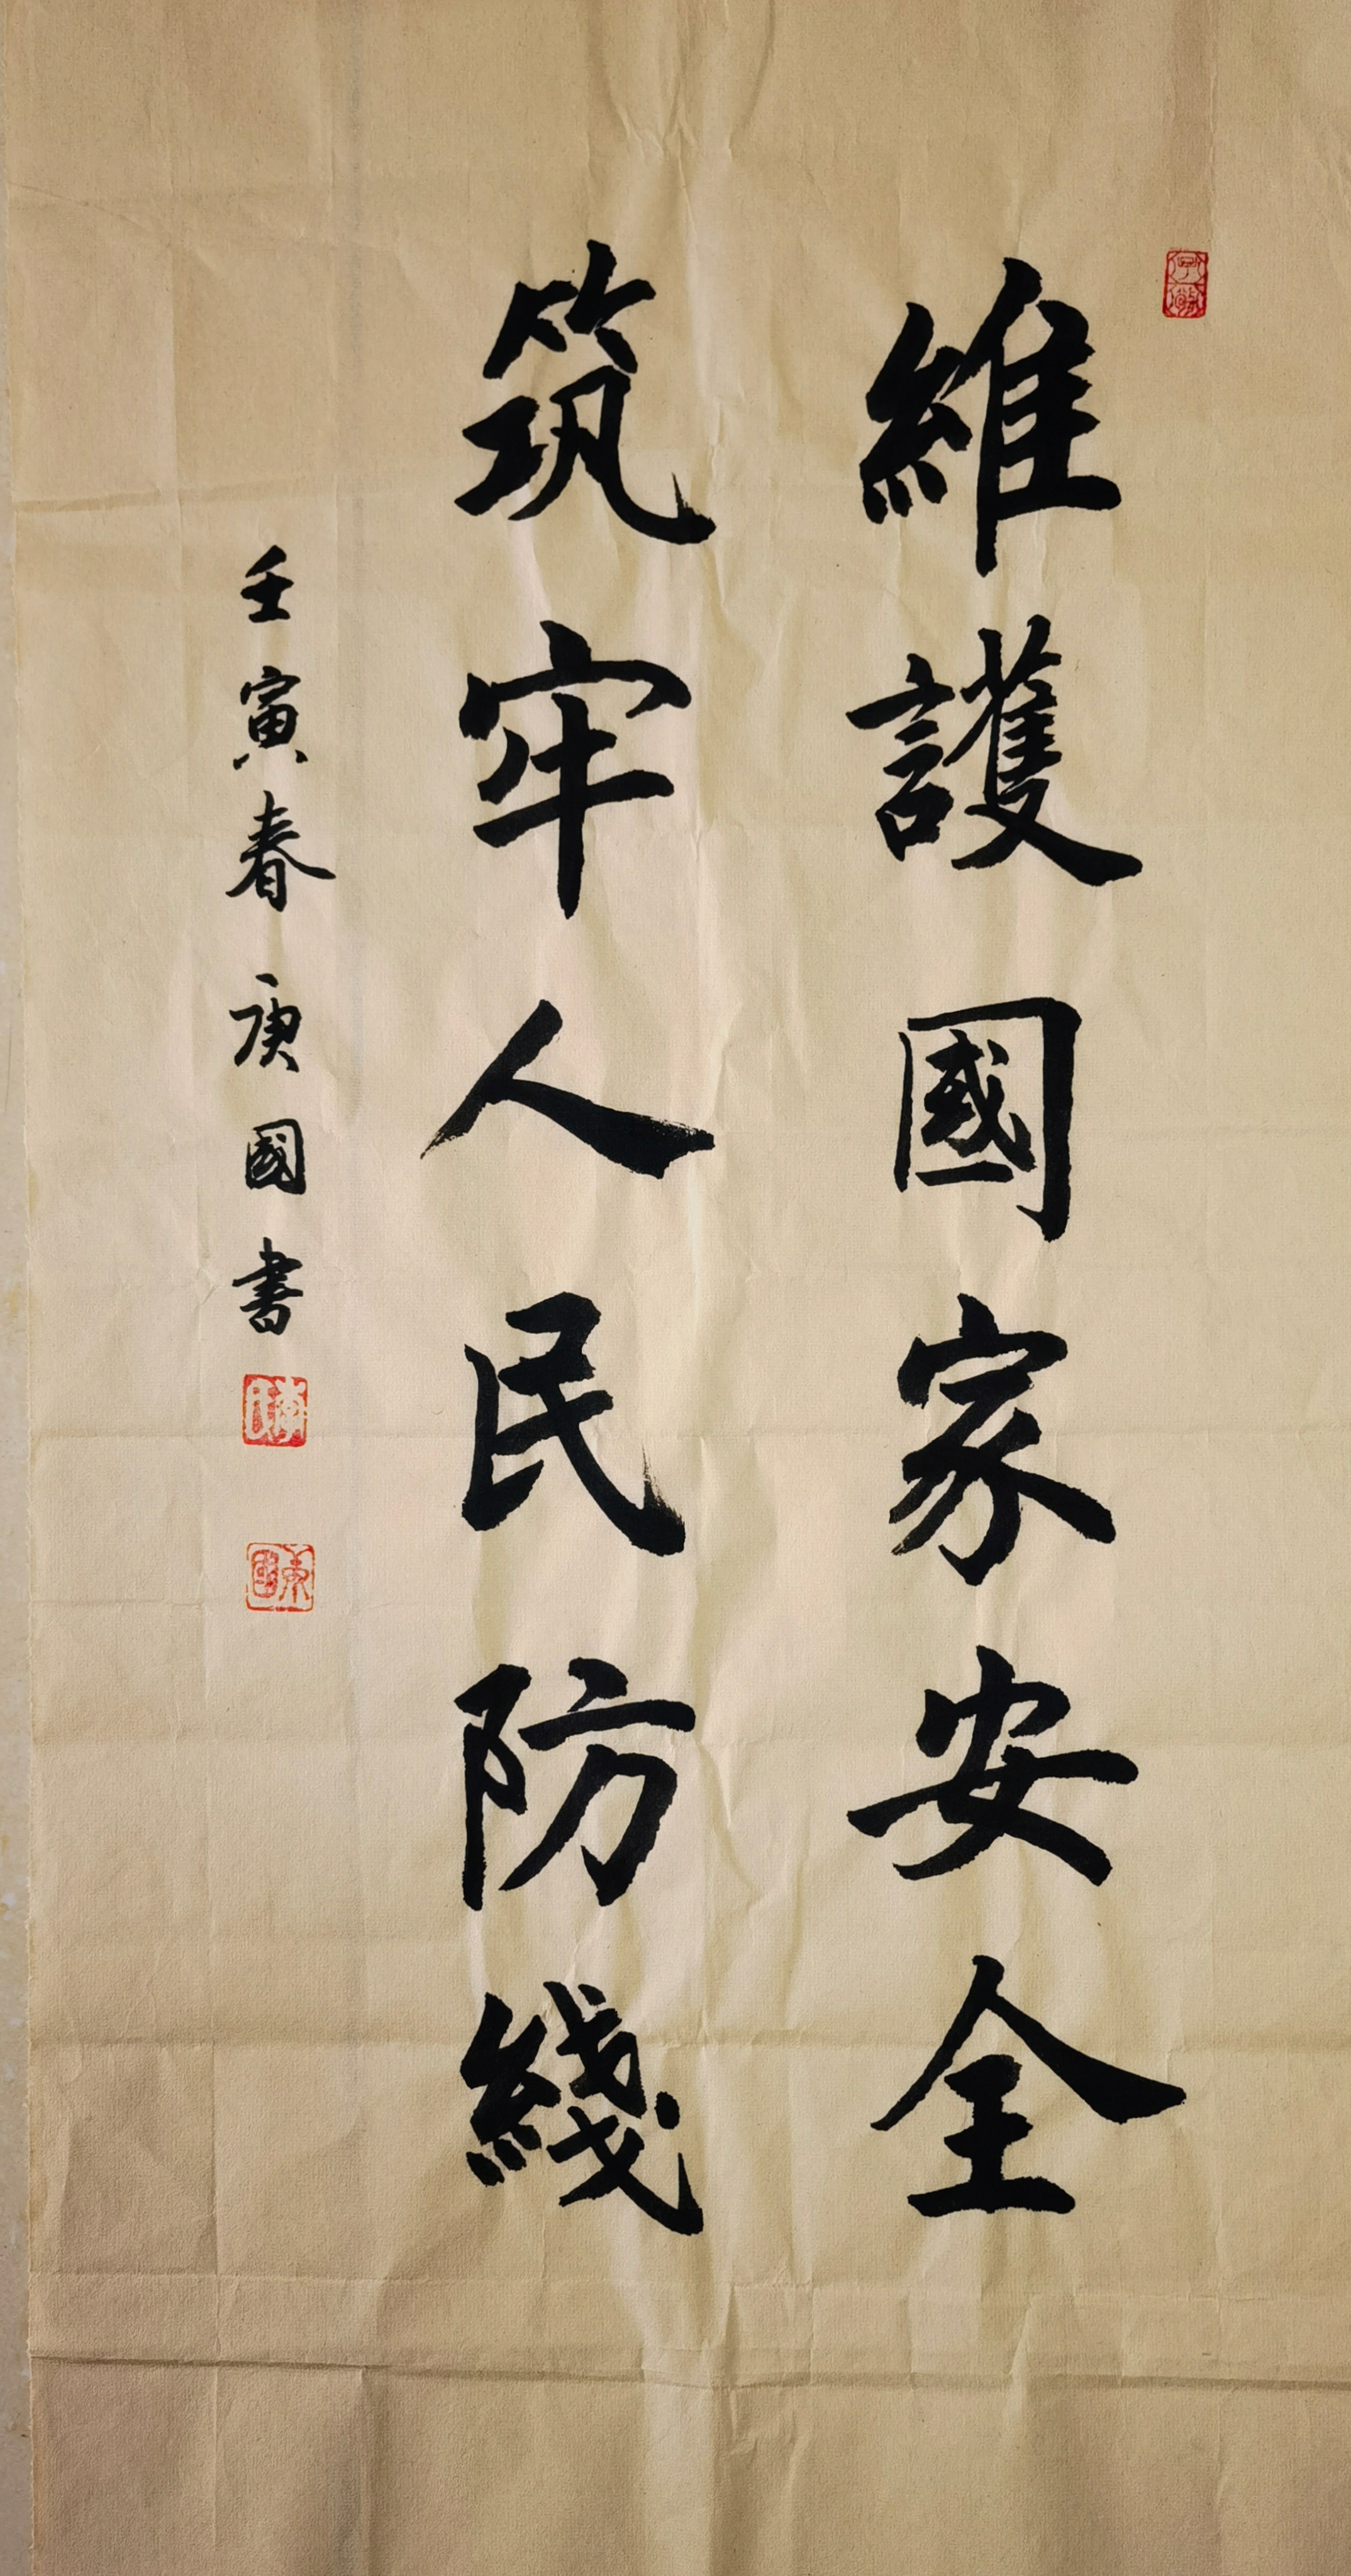 維護國家安全
筑牢人民防綫
壬寅春 庚國書